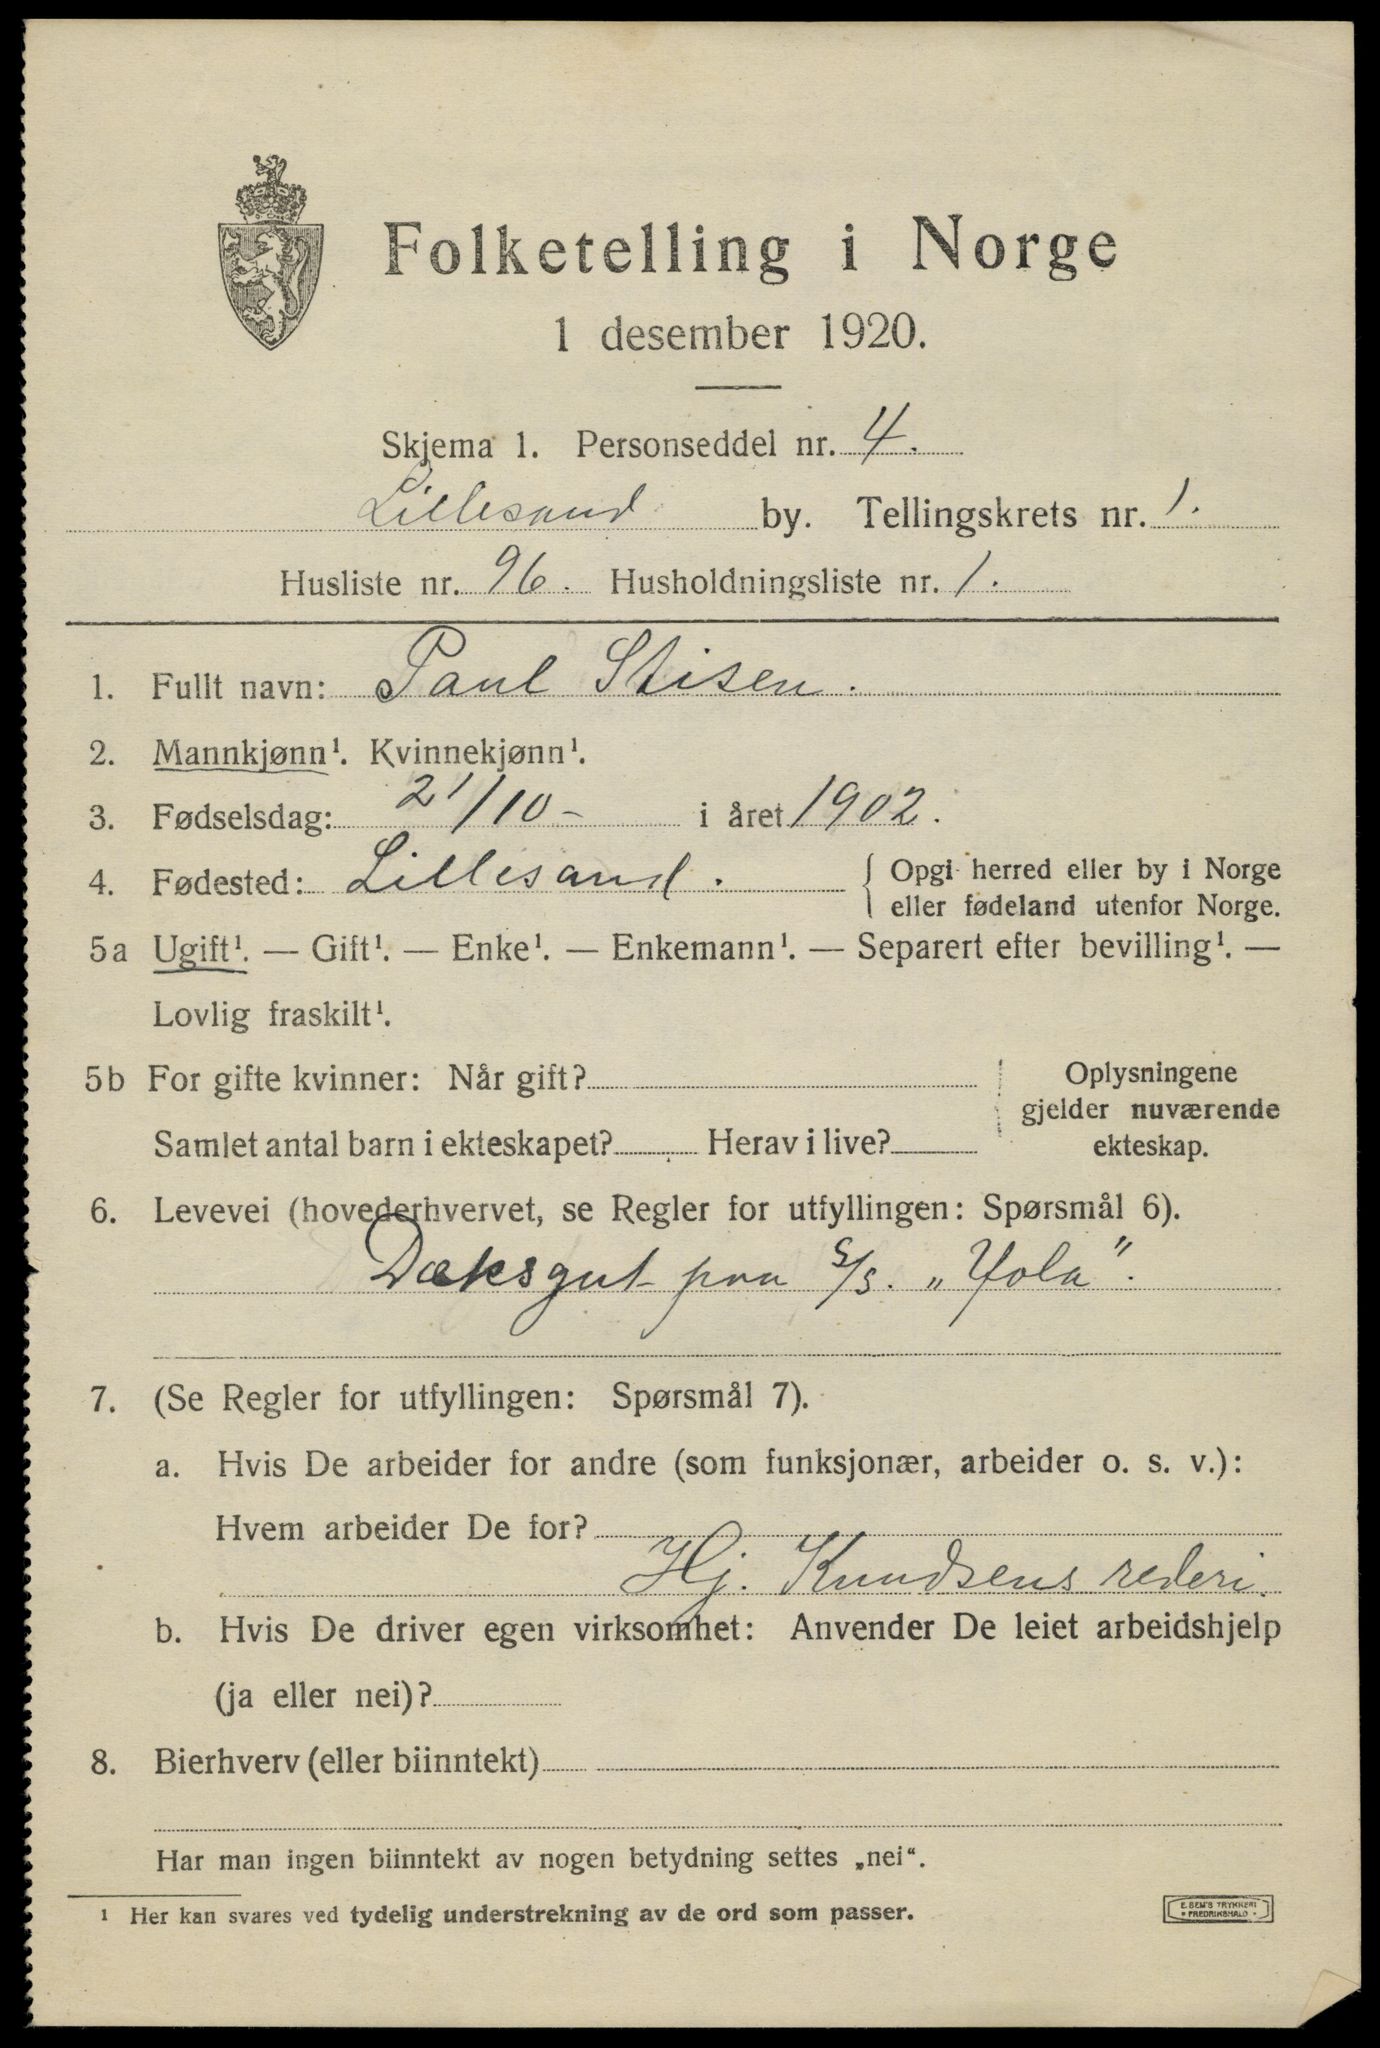 Folketelling i Norge
1 desember 1920.
Skjema 1. Personseddel nr. 4.
Lillesand by. Tellingskrets nr. 1.
Husliste nr. 96. Husholdningsliste nr. 1.
1. Fullt navn: Paul Stisen.
2. Mannkjønn¹. Kvinnekjønn¹.
3. Fødselsdag: 21/10- i året 1902.
4. Fødested: Lillesand. { Opgi herred eller by i Norge
eller fødeland utenfor Norge.
5a Ugift¹. — Gift¹. — Enke¹. — Enkemann¹. — Separert efter bevilling¹. —
Lovlig fraskilt¹.
5b For gifte kvinner: Når gift? Oplysningene
gjelder nuværende
Samlet antal barn i ekteskapet? Herav i live? ekteskap.
6. Levevei (hovederhvervet, se Regler for utfyllingen: Spørsmål 6).
Dæksgut paa S/S. „Yola".
7. (Se Regler for utfyllingen: Spørsmål 7).
a. Hvis De arbeider for andre (som funksjonær, arbeider o. s. v.):
Hvem arbeider De for?
Hj. Knudsens rederi.
b. Hvis De driver egen virksomhet: Anvender De leiet arbeidshjelp
(ja eller nei)?
8. Bierhverv (eller biinntekt)
Har man ingen biinntekt av nogen betydning settes „nei".
¹ Her kan svares ved tydelig understrekning av de ord som passer.
E. SEM'S TRYKKERI
• FREDRIKSHALD •